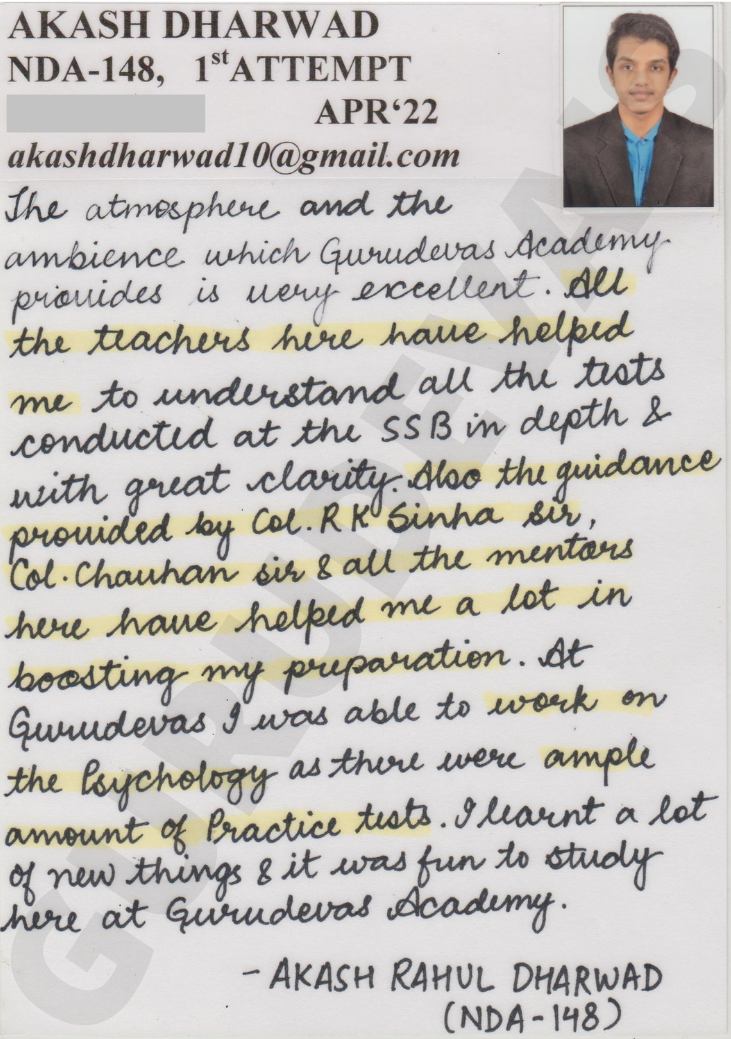 AKASH DHARWAD
NDA-148, 1st ATTEMPT
APR‘22
akashdharwad10@gmail.com
The atmosphere and the
ambience which Gurudevas Academy
provides is very excellent. All
the teachers here have helped
me to understand all the tests
conducted at the SSB in depth &
with great clarity. Also the guidance
provided by Col. R K Sinha sir,
Col. Chauhan sir & all the mentors
here have helped me a lot in
boosting my preparation. At
Gurudevas I was able to work on
the Psychology as there were ample
amount of Practice tests. I learnt a lot
of new things & it was fun to study
here at Gurudevas Academy.
- AKASH RAHUL DHARWAD
(NDA-148)
GURUDEVAS